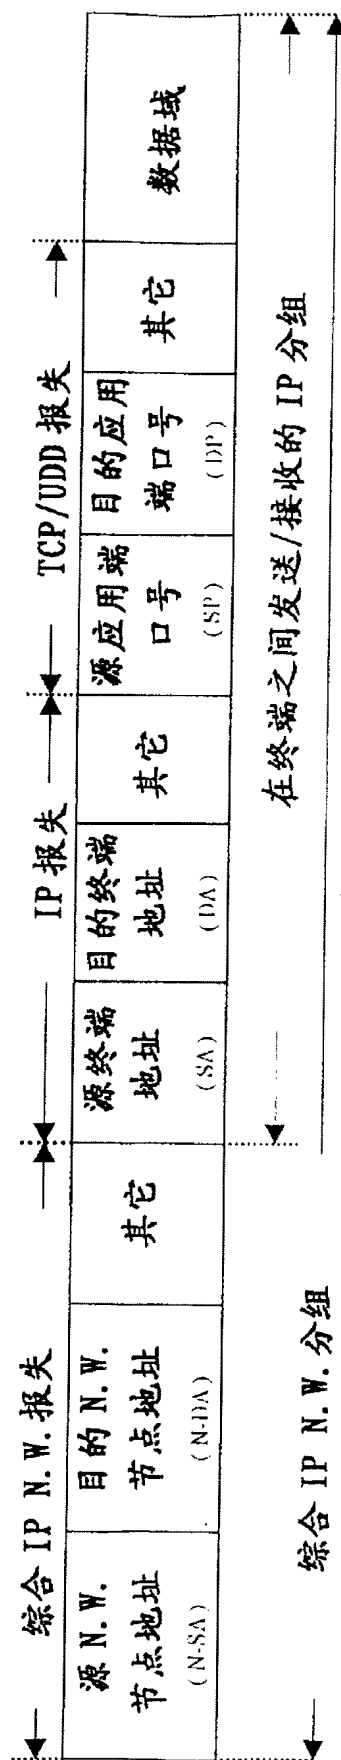 综合IP N.W.报失
IP 报失
TCP/UDD 报失
源N.W.
节点地址
(N-SA)
目的N.W.
节点地址
(N-DA)
其它
源终端
地址
(SA)
目的终端
地址
(DA)
其它
源应用端
口号
(SP)
目的应用
端口号
(DP)
其它
数据域
在终端之间发送/接收的 IP 分组
综合 IP N.W.分组